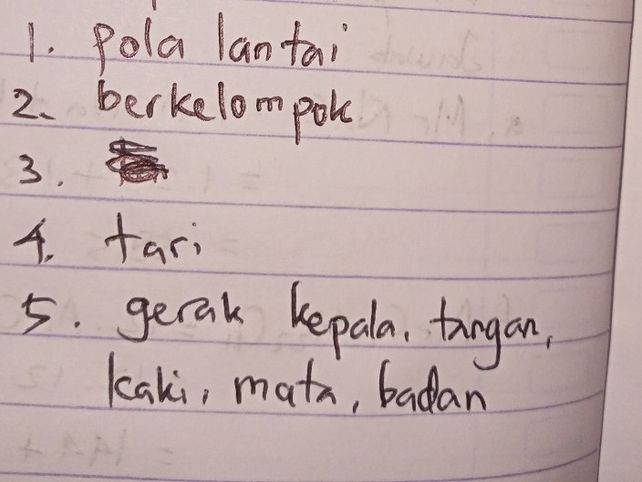 1. pola lantai
2. berkelompok
3.
4. tari
5. gerak kepala, tangan,
kaki, mata, badan